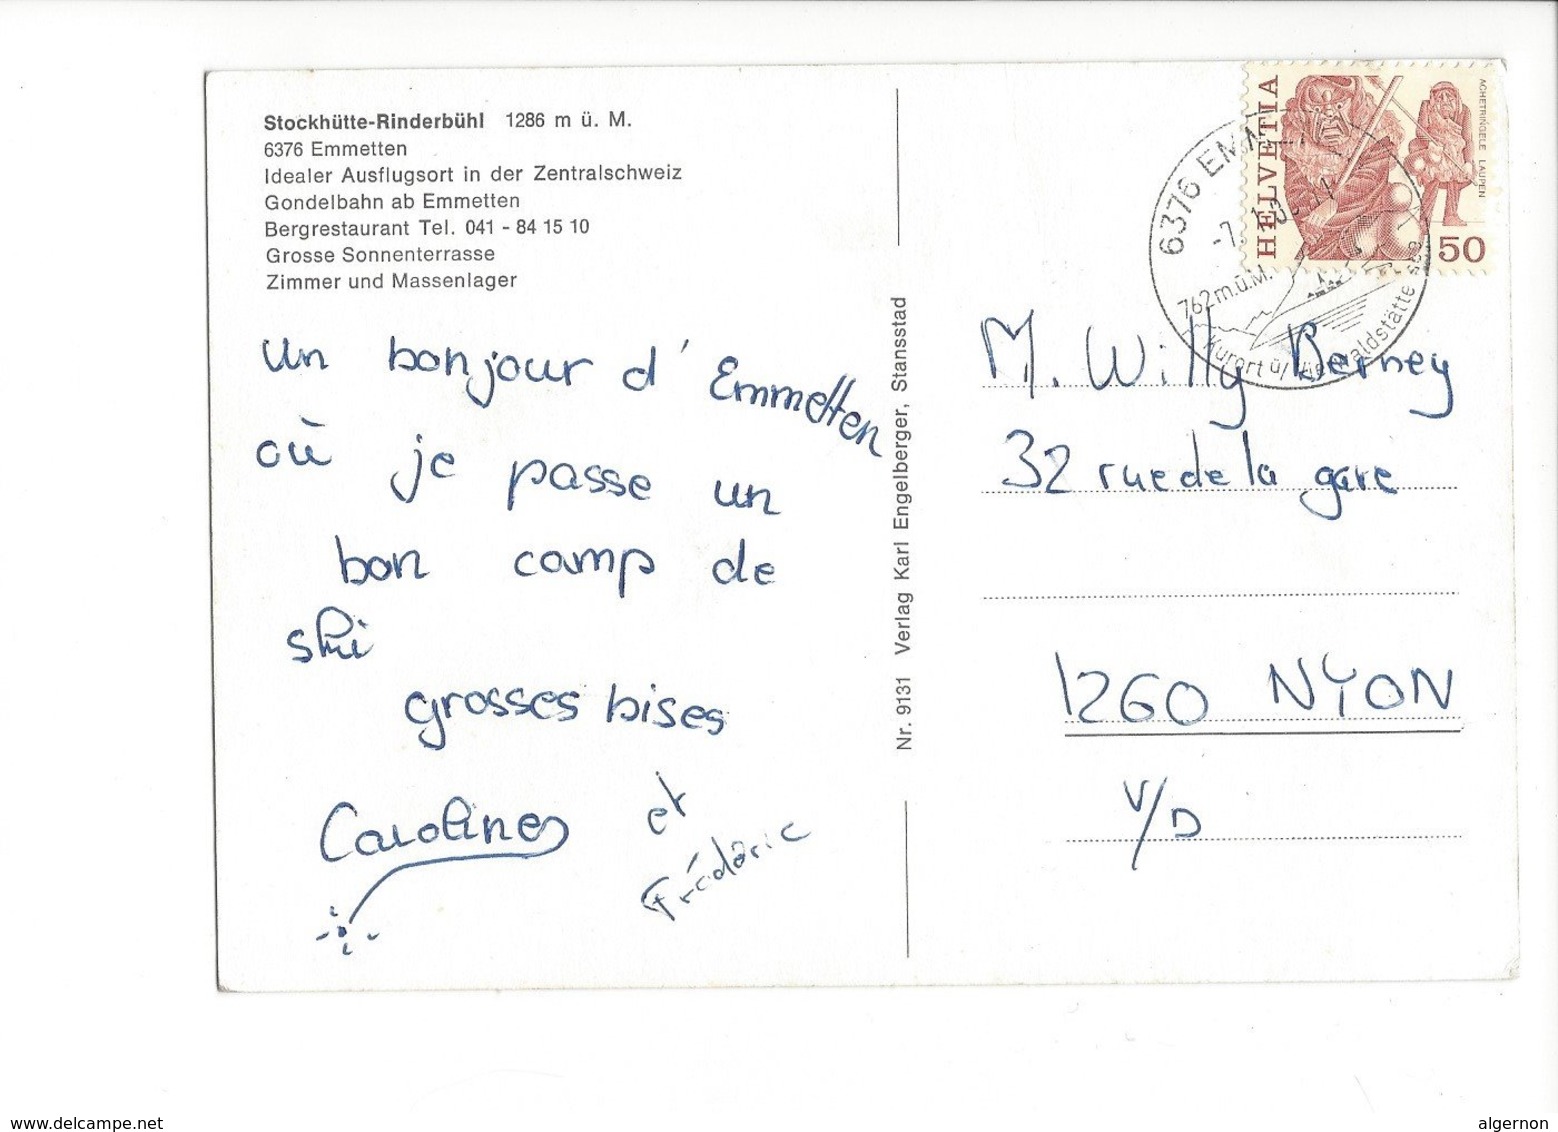 Stockhütte-Rinderbühl 1286 m ü. M.
6376 Emmetten
Idealer Ausflugsort in der Zentralschweiz
Gondelbahn ab Emmetten
Bergrestaurant Tel. 041 - 84 15 10
Grosse Sonnenterrasse
Zimmer und Massenlager
un bonjour d'Emmetten
où je passe un
bon camp de
ski
grosses bises
Caroline et
Frédéric
Nr. 9131 Verlag Karl Engelberger, Stansstad
HELVETIA
ACHETRINGELE LAUPEN
50
6376 EMM
762 m.ü.M.
Kurort ü/ Vierwaldstätte see
M. Willy Berney
32 rue de la gare
1260 NYON
V/D
www.delcampe.net
algernon